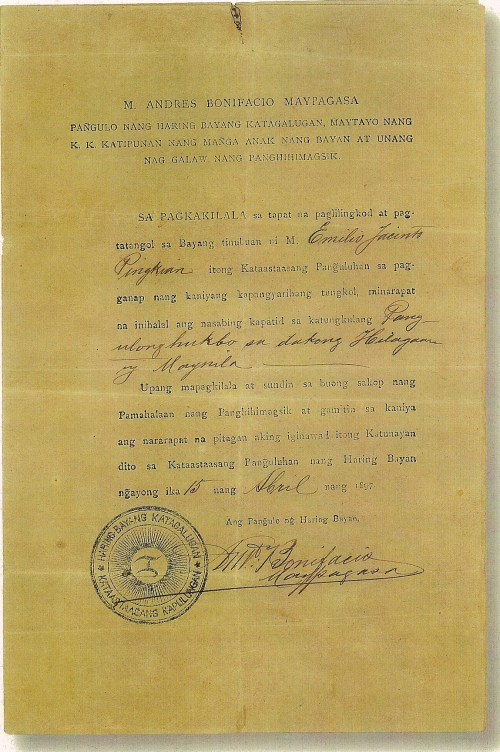 M. ANDRES BONIFACIO MAYPAGASA
PAÑGULO NANG HARING BAYANG KATAGALUGAN, MAYTAYO NANG
K. K. KATIPUNAN NANG MAÑGA ANAK NANG BAYAN AT UNANG
NAG GALAW NANG PANGHIHIMAGSIK.
SA PAGKAKILALA sa tapat na paglilingkod at pag-
tatangol sa Bayang tinubuan ni M. Emilio Jacinto
Pingkian itong Kataastaasang Pañguluhan sa pag-
ganap nang kaniyang kapangyarihang tungkol, minarapat
na inihalal ang nasabing kapatid sa katungkulang Pang-
ulong hukbo sa dakong Hilagaan
ng Maynila
Upang mapagkilala at sundin sa buong sakop nang
Pamahalaan nang Panghihimagsik at gamitin sa kaniya
ang nararapat na pitagan aking iginawad itong Katunayan
dito sa Kataastaasang Pañguluhan nang Haring Bayan
ñgayong ika 15 nang Abril nang 1897
Ang Pañgulo ng Haring Bayan,
HARING-BAYANG KATAGALUGAN
KATAASTAASANG KAPULUÑGAN
And. Bonifacio
Maypagasa